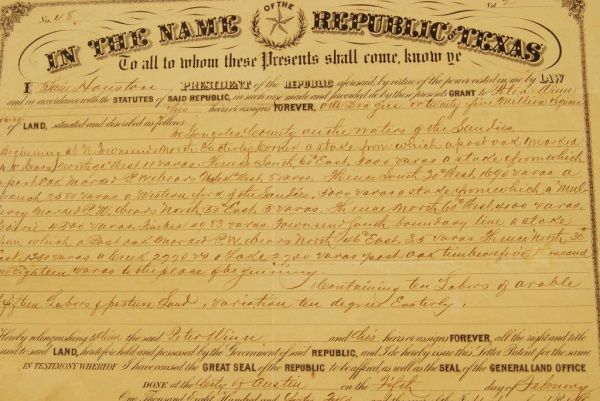 No. 48.
OF THE
IN THE NAME REPUBLIC OF TEXAS
To all to whom these Presents shall come, know ye
I Sam Houston PRESIDENT OF THE REPUBLIC aforesaid, by virtue of the power vested in me by LAW
and in accordance with the STATUTES OF SAID REPUBLIC, in such case made and provided, do by these presents GRANT to Peter Winn
his heirs or assigns FOREVER, one League or twenty five Million square
varas OF LAND, situated and described as follows.
In Gonzales County on the waters of the Sandies
Beginning at N Townsends North Easterly Corner a stake from which a post oak marked
bears North West 11 varas. Thence South 60° East, 5000 varas a stake from which
a post oak marked P.W. bears West 8 varas. Thence South 30° West 1690 varas a
branch 2580 varas a Western fork of the Sandies, 5000 varas a stake from which a mul
berry marked P.W. bears North 50° East 3 varas. Thence North 60° West 4100 varas
4300 varas Townsend fourth boundary line a stake
from which a Post oak marked P.W. bears North 46° East, 25 varas Thence North 30°
East, 1350 varas a Creek 2220 varas a Lake 2700 varas post oak timber five thousand
Eighteen varas to the place of beginning.
Containing ten Labors of arable
fifteen Labors of pasture Land, variation ten degrees Easterly.
Hereby relinquishing to him the said Peter Winn and his heirs or assigns FOREVER, all the right and title
and to said LAND, heretofore held and possessed by the Government of said REPUBLIC, and I do hereby issue this Letter Patent for the same
IN TESTIMONY WHEREOF I have caused the GREAT SEAL OF THE REPUBLIC to be affixed, as well as the SEAL OF THE GENERAL LAND OFFICE
DONE AT THE City of Austin on the Fifth day of February
One Thousand Eight Hundred and